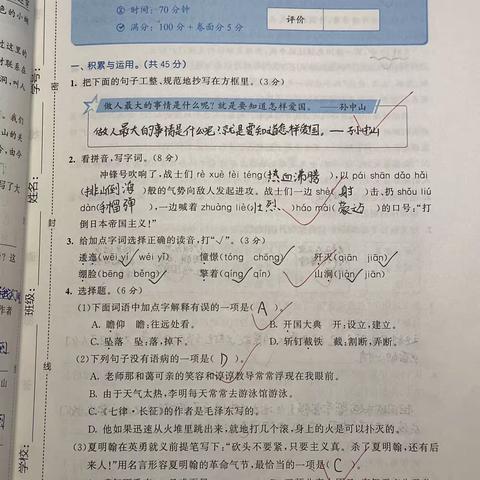 时间:70分钟
满分:100分+卷面分5分
评价
一、积累与运用。(共45分)
1. 把下面的句子工整、规范地抄写在方框里。(3分)
做人最大的事情是什么呢?就是要知道怎样爱国。 ——孙中山
做人最大的事情是什么呢?就是要知道怎样爱国。——孙中山
2. 看拼音,写字词。(8分)
冲锋号吹响了,战士们 rè xuè fèi téng(热血沸腾),以 pái shān dǎo hǎi
(排山倒海)般的气势向敌人发起进攻。战士们一边 shè(射)击、扔 shǒu liú
dàn(手榴弹),一边喊着 zhuàng liè(壮烈)háo mài(豪迈)的口号:“打
倒日本帝国主义!”
3. 给加点字词选择正确的读音,打“√”。(3分)
逶迤(wēi yí√ wēi yǐ) 憧憬(tóng chōng√) 歼灭(qiān jiān√)
绷脸(bēng běng√) 擎着(qíng√ jīng) 山涧(jiàn√ jiān)
4. 选择题。(6分)
(1)下面词语中加点字解释有误的一项是( A )。
A. 瞻仰 瞻:往远处看。 B. 开国大典 开:设立,建立。
C. 坠落 坠:落,掉下。 D. 斩钉截铁 截:割断,弄断。
(2)下列句子没有语病的一项是( D )。
A. 老师那和蔼可亲的笑容和谆谆教导常常浮现在我眼前。
B. 由于天气太热,李明每天常常去游泳馆游泳。
C.《七律·长征》的作者是毛泽东写的。
D. 他如果迅速从火堆里跳出来,就地打几个滚,身上的火是可以扑灭的。
(3)夏明翰在英勇就义前提笔写下:“砍头不要紧,只要主义真。杀了夏明翰,还有后
来人!”用名言形容夏明翰的革命气节,最恰当的一项是( C )。
学号:
姓名:
班级:
学校:
密
封
线